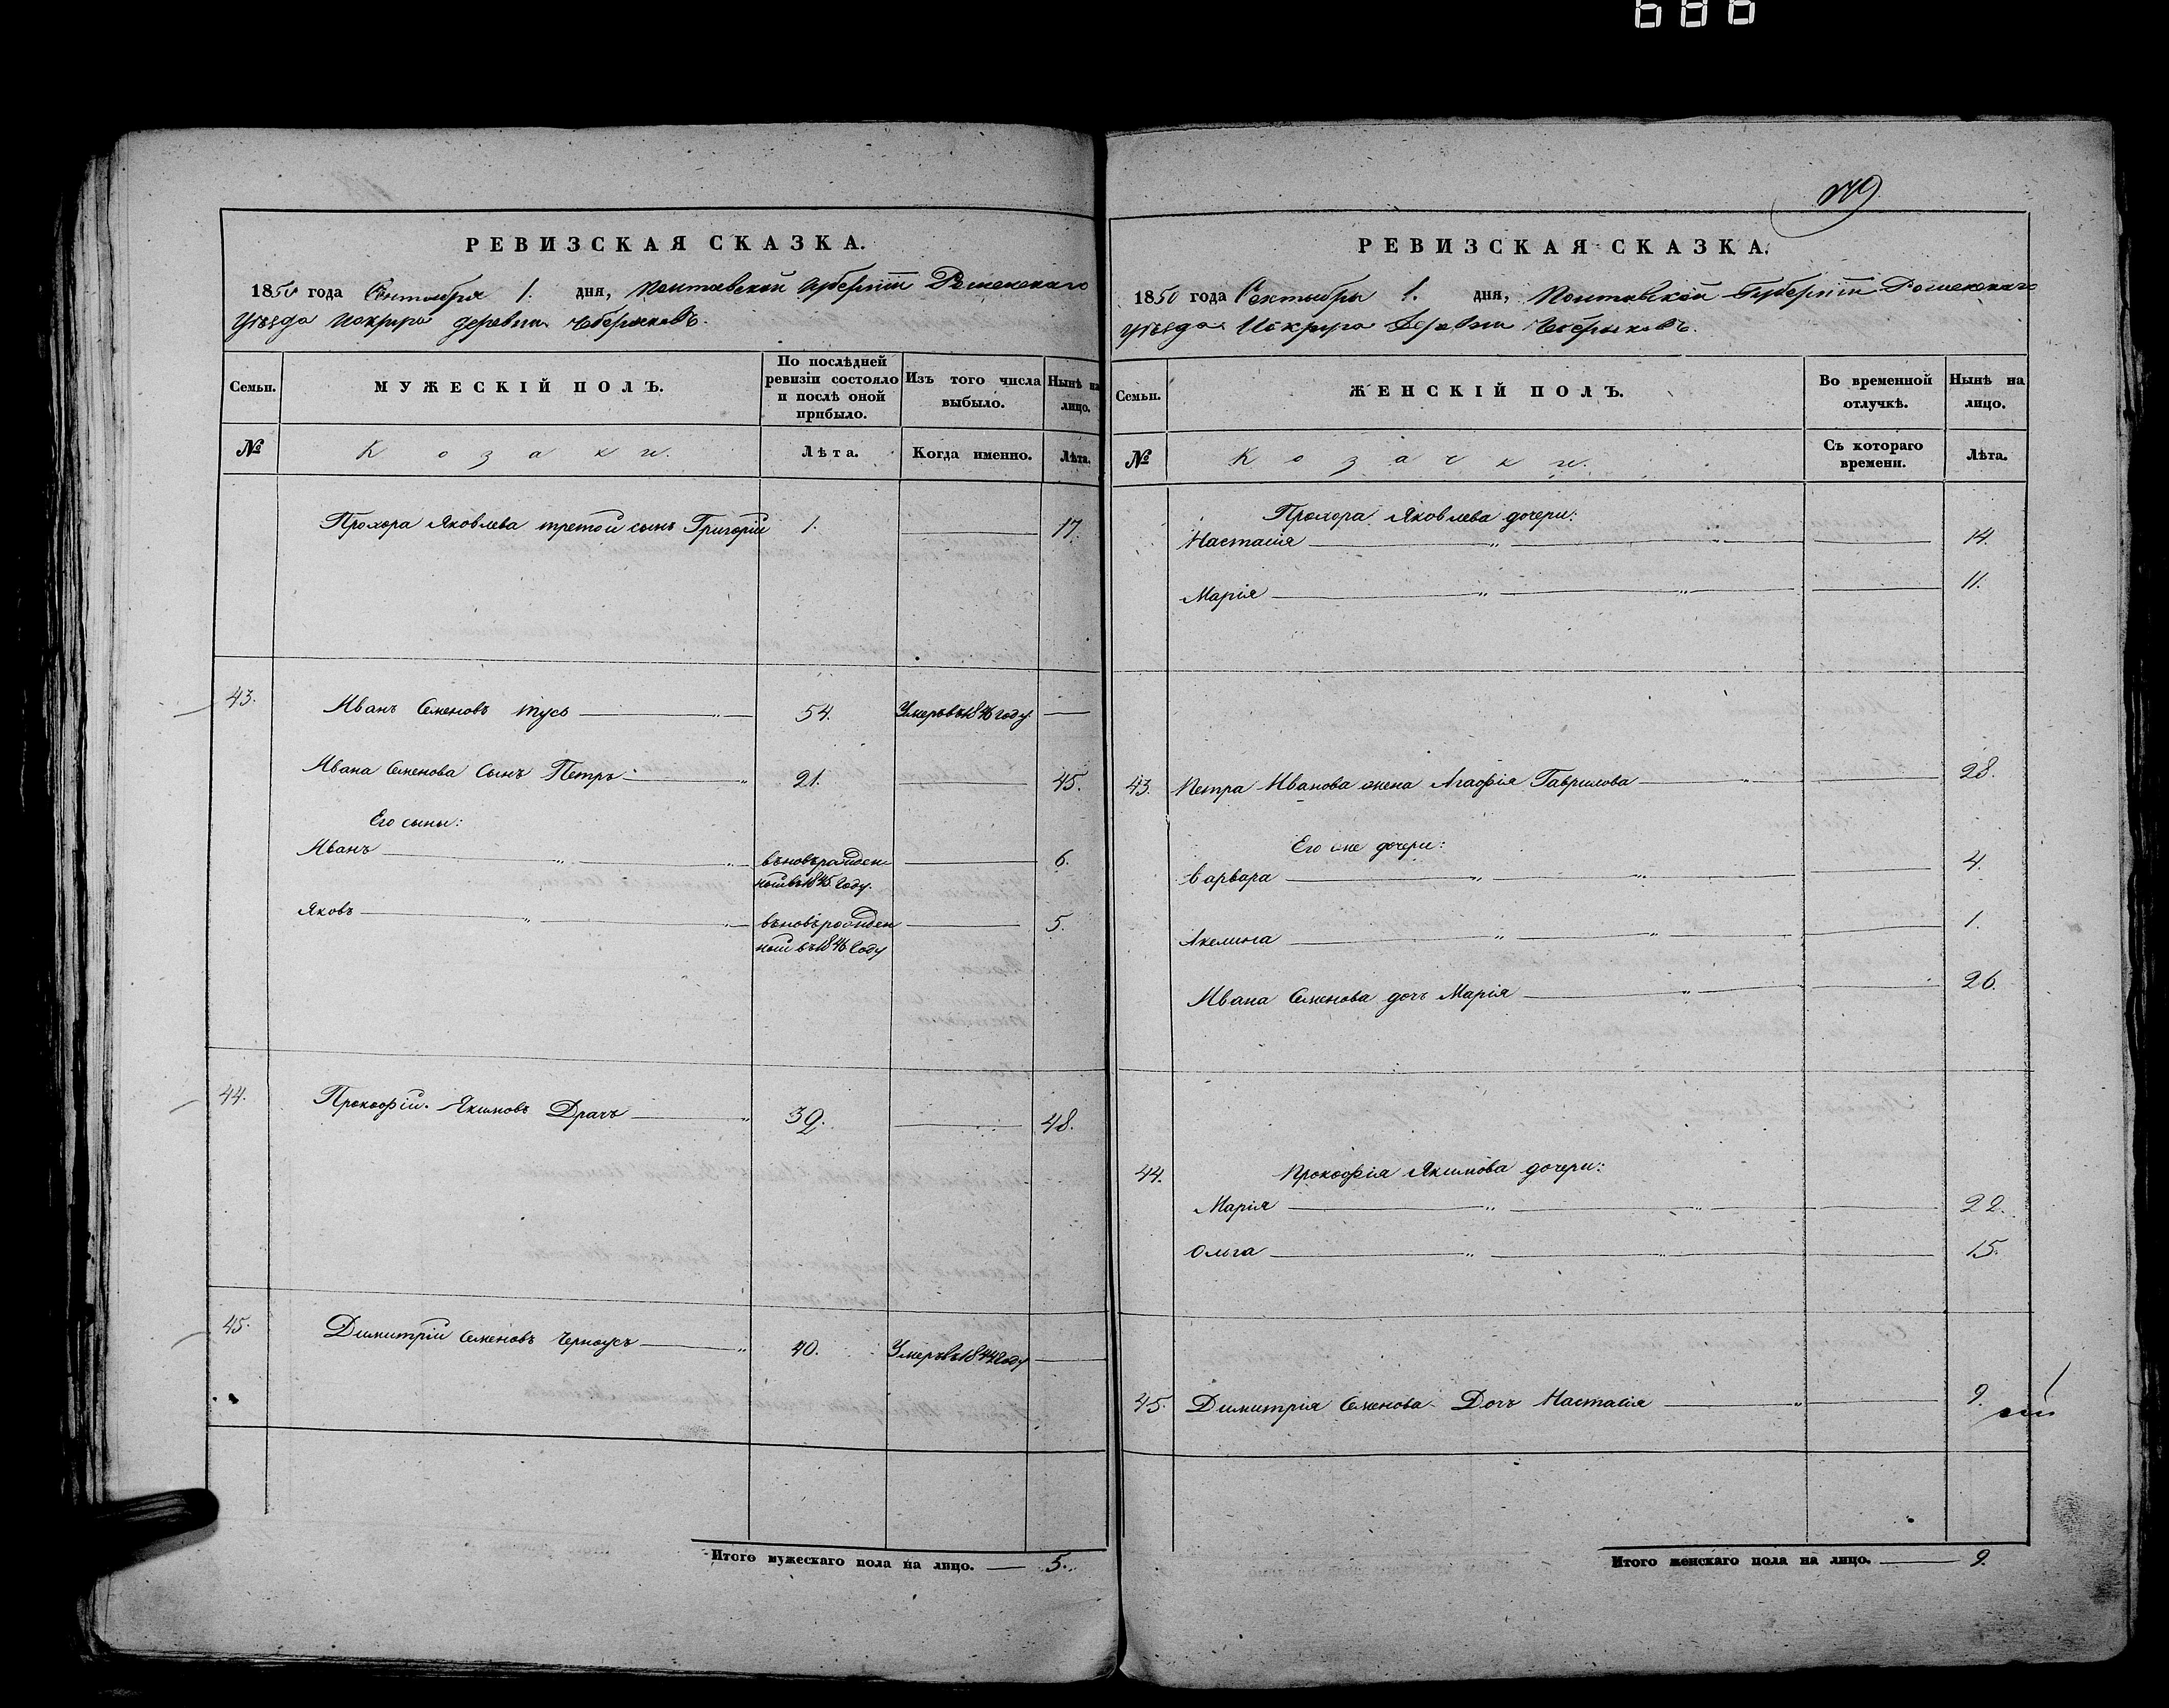 686
РЕВИЗСКАЯ СКАЗКА.
1850 года Сентября 1. дня, Полтавской Губерніи Роменскаго
Уѣзда деревни
Семьи.
МУЖЕСКІЙ ПОЛЪ.
По послѣдней ревизіи состояло и послѣ оной прибыло.
Изъ того числа выбыло.
Нынѣ на лицо.
№
Козаки.
Лѣта.
Когда именно.
Лѣта.
Прохора Яковлева третой сынъ Григорій 1. 17.
43. Иванъ Семеновъ Тусь 54. Умеръ въ 1846 году.
Ивана Семенова Сынъ Петръ 21. 45.
Его сыны:
Иванъ въновърожден 6.
ной въ 1845 Году.
Яковъ въновърожден 5.
ной въ 1846 Году
44. Прокофій Якимовъ Драчъ 39. 48.
45. Димитрій Семеновъ Черноусъ 40. Умеръ въ 1844 Году
Итого мужескаго пола на лицо. 5.
РЕВИЗСКАЯ СКАЗКА.
1850 года Сентября 1. дня, Полтавской Губерніи Роменскаго
Уѣзда Деревни
Семьи.
ЖЕНСКІЙ ПОЛЪ.
Во временной отлучкѣ.
Нынѣ на лицо.
№
Козачки.
Съ котораго времени.
Лѣта.
Прохора Яковлева дочери:
Настасія 14.
Марія 11.
43. Петра Иванова жена Агафія Гаврилова 28.
Его же дочери:
Варвара 4.
Акелина 1.
Ивана Семенова дочъ Марія 26.
44. Прокофія Якимова дочери:
Марія 22.
Ольга 15.
45. Димитрія Семенова Дочъ Настасія 9.
Итого женскаго пола на лицо. 9.